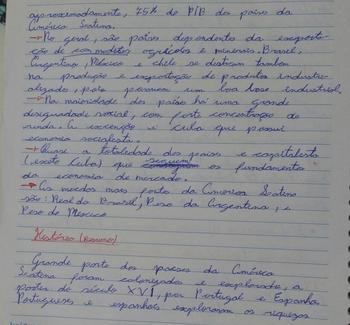 aproximadamente, 75% do PIB dos países da
América Latina.
→ No geral, são países dependentes da exporta-
ção de commodities agrícolas e minerais. Brasil,
Argentina, México e Chile se destacam também
na produção e exportação de produtos industria-
lizados, pois possuem uma boa base industrial.
→ Na maioridade dos países há uma grande
desigualdade social, com forte concentração de
renda. A exceção é Cuba que possui
economia socialista.
→ Quase totalidade dos países é capitalista
(exceto Cuba) que seguem os fundamentos
da economia de mercado.
→ As moedas mais fortes da América Latina
são: Real do Brasil, Peso da Argentina, e
Peso do México
História (resumo)
Grande parte dos países da América
Latina foram colonizados e explorados, a
partir do século XVI, por Portugal e Espanha.
Portugueses e espanhóis exploraram as riquezas